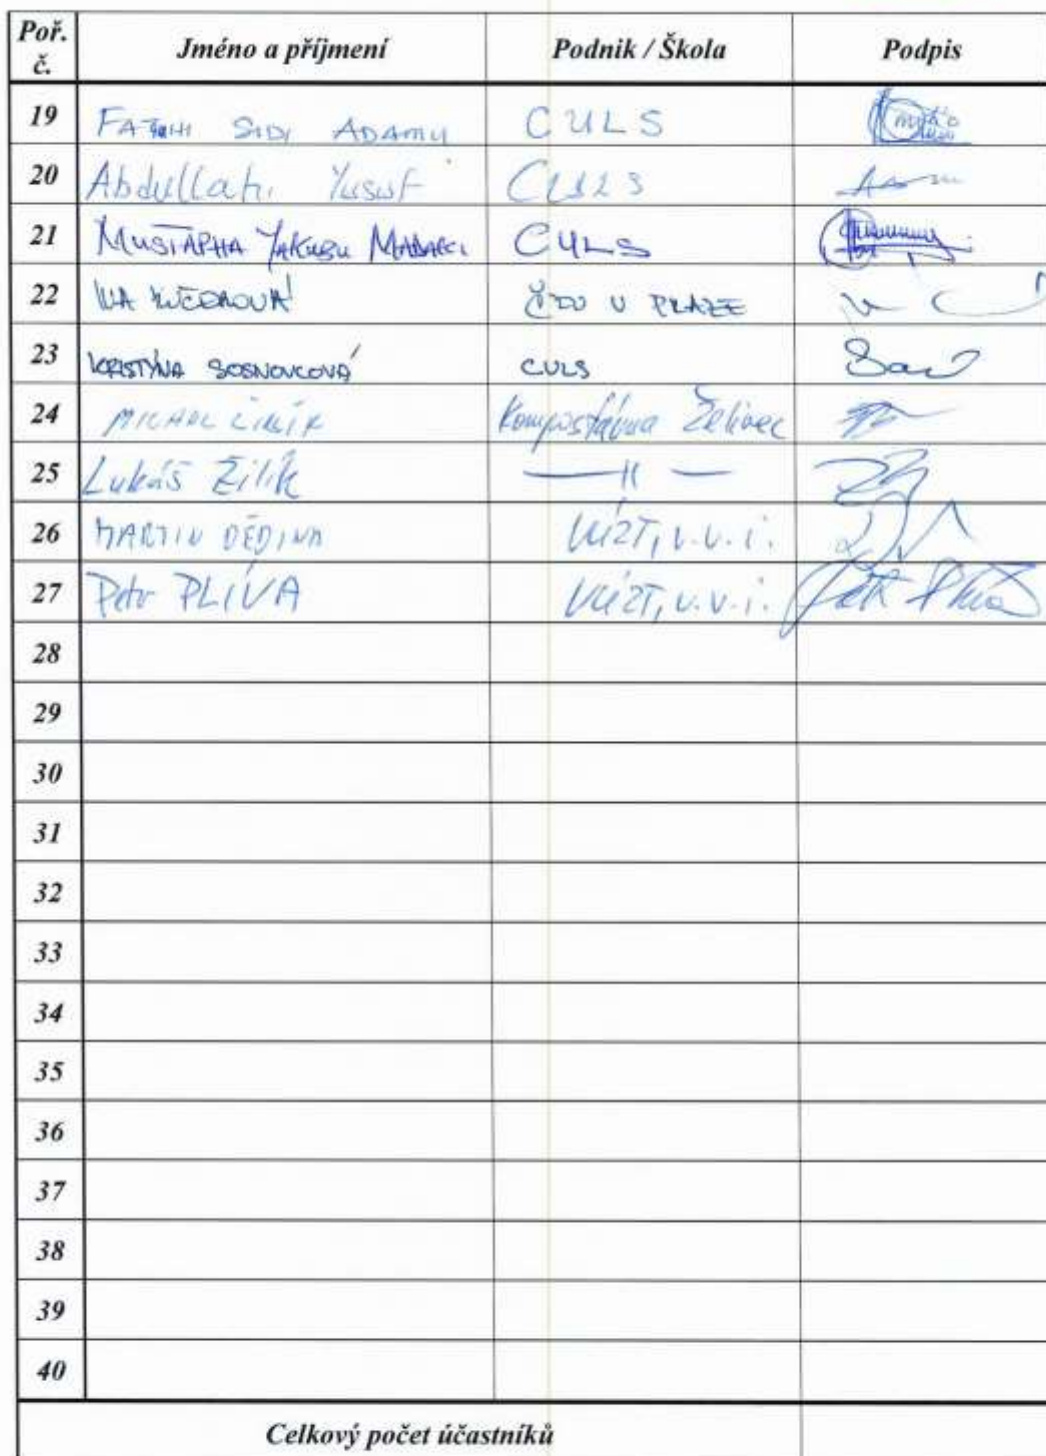 Poř. č. Jméno a příjmení Podnik / Škola Podpis
19 SIDI ADAMU CULS
20 Abdullahi Yusuf CULS
21 MUSTAPHA YAKUBU CULS
22 ČZU V PRAZE
23 KRISTÝNA SOSNOVCOVÁ CULS
24 MICHAL Kompostárna Želivec
25 Lukáš Žilík —〃—
26 MARTIN DĚDINA VÚZT, v.v.i.
27 Petr PLÍVA VÚZT, v.v.i.
28
29
30
31
32
33
34
35
36
37
38
39
40
Celkový počet účastníků